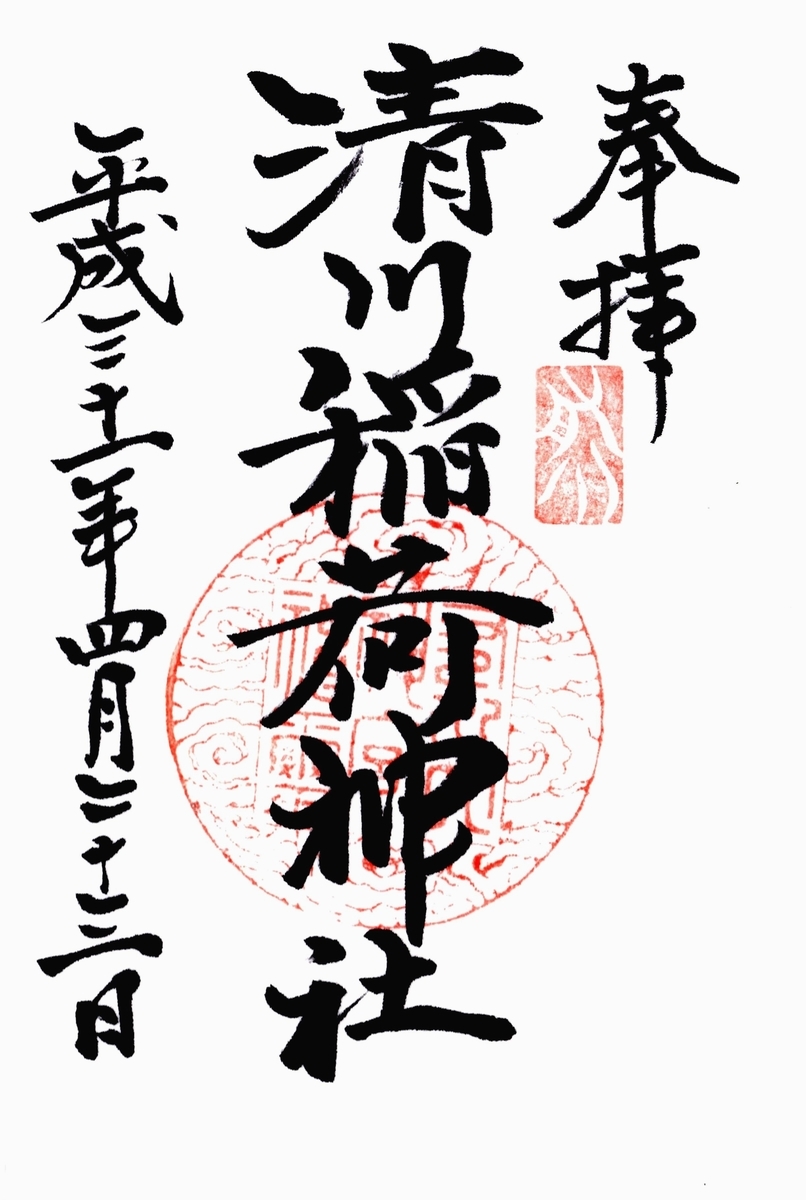 奉拝
清川稲荷神社
平成三十一年四月二十三日